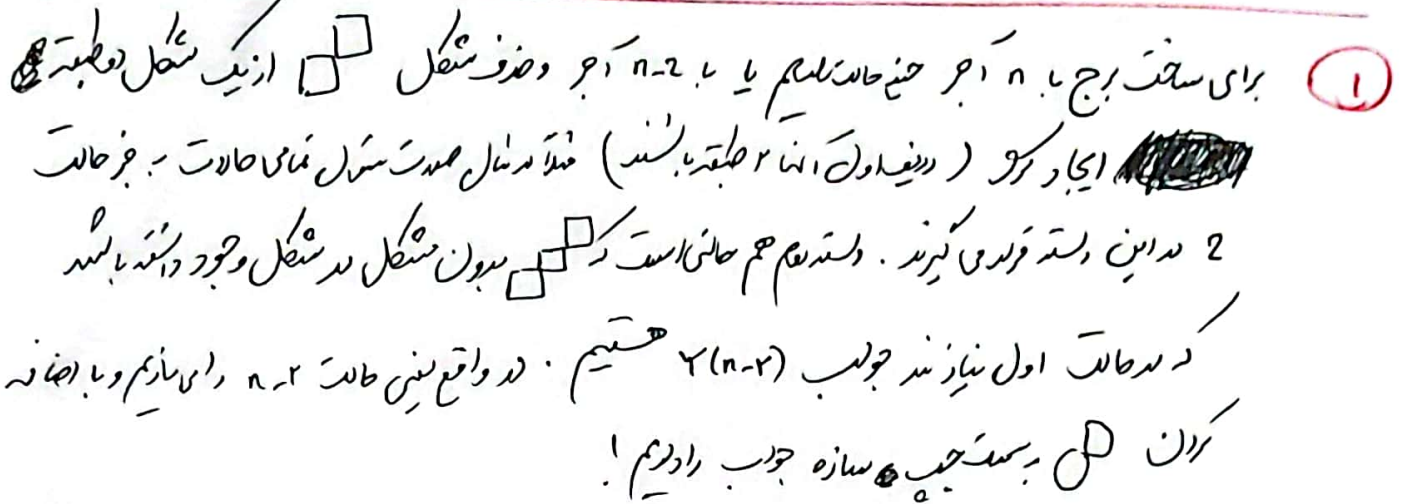 ۱ برای ساخت برج با n آجر چند حالت داریم یا با n-2 آجر و حذف شکل از یک شکل دو طبقه
ایجاد کرد (ردیف اول آنها ۲ طبقه باشند) مثلا در مثال صورت سوال تمامی حالات به جز حالت
2 در این دسته قرار می گیرند . دسته دوم هم حالتی است که بدون مشکل در شکل وجود داشته باشد
که در حالت اول نیازمند جواب ۲(n-۲) هستیم . در واقع یعنی حالت n-۲ را می سازیم و با اضافه
کردن به سمت چپ سازه جواب را داریم !